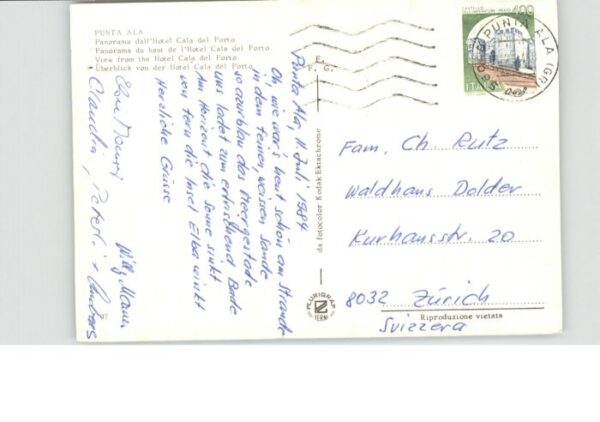 PUNTA ALA
Panorama dall'Hotel Cala del Porto
Panorama du haut de l'Hotel Cala del Porto
View from the Hotel Cala del Porto
Überblick von der Hotel Cala del Porto
Punta Ala, 11. Juli 1984
Oh, wie war's heut schön am Strande
in dem feinen weissen Sande
so azurblau das Meergestade
uns ladet zum erfrischend Bade
Am Horizont die Sonne sinkt
von fern die Insel Elba winkt
Herzliche Grüsse
Willy
Claudia, Peterli +
E.
F. G.
da fotocolor Kodak Ektachrome
PLURIGRAF
TERNI
CASTELLO
400
ITALIA
PUNTA ALA (GR)
Fam. Ch. Rutz
Waldhaus Dolder
Kurhausstr. 20
8032 Zürich
Svizzera
Riproduzione vietata
97